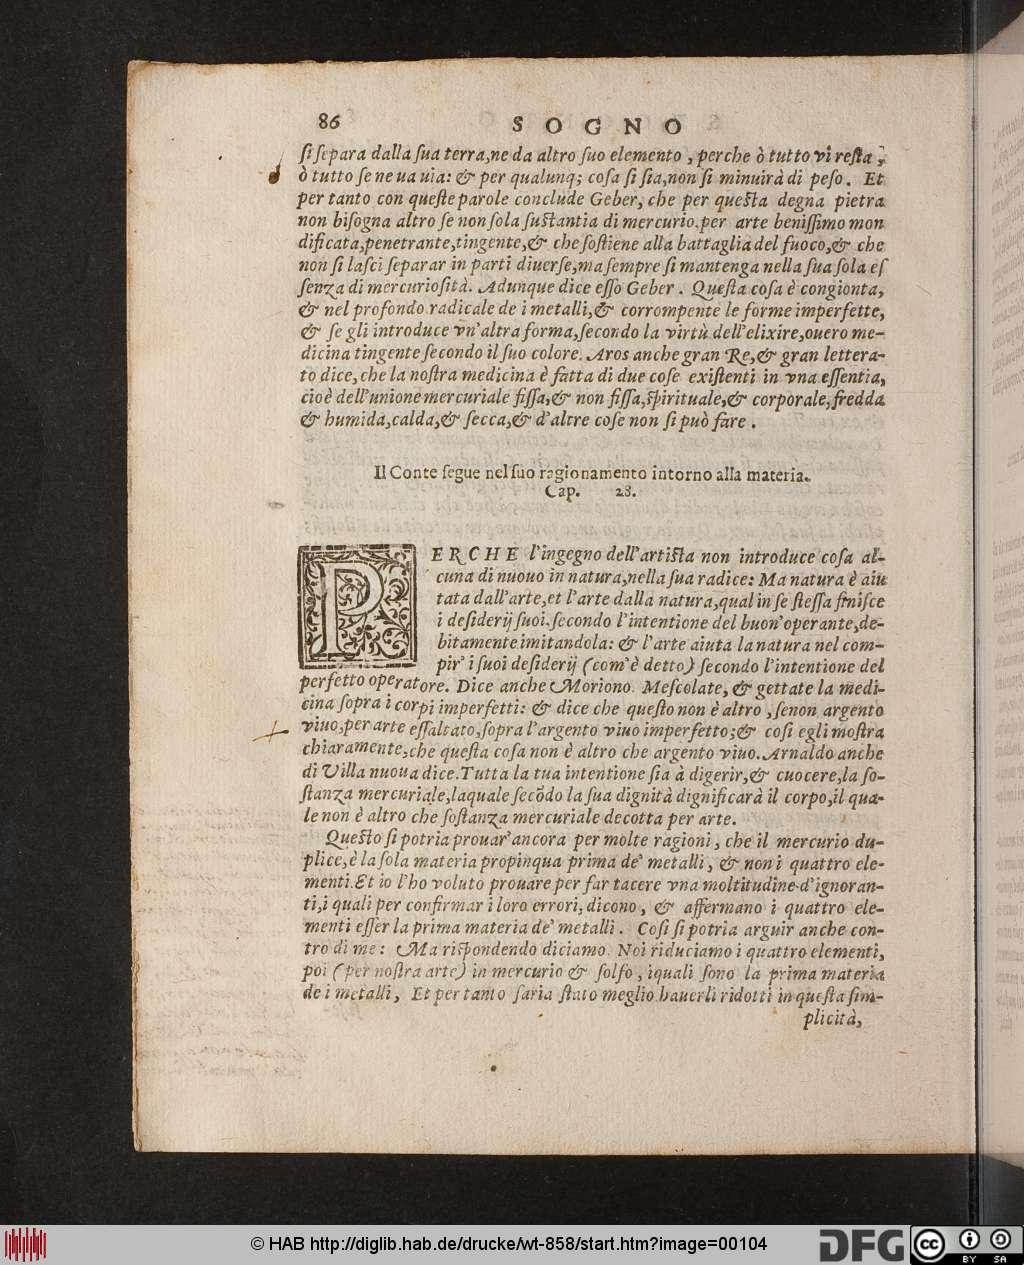 86 SOGNO
ſi ſepara dalla ſua terra, ne da altro ſuo elemento, perche ò tutto vi reſta,
ò tutto ſe ne ua uia: & per qualunq; coſa ſi ſia, non ſi minuirà di peſo. Et
per tanto con queſte parole conclude Geber, che per queſta degna pietra
non biſogna altro ſe non ſola ſuſtantia di mercurio, per arte beniſſimo mon
dificata, penetrante, tingente, & che ſoſtiene alla battaglia del fuoco, & che
non ſi laſci ſeparar in parti diuerſe, ma ſempre ſi mantenga nella ſua ſola eſ
ſenza di mercurioſità. Adunque dice eſſo Geber. Queſta coſa è congionta,
& nel profondo radicale de i metalli, & corrompente le forme imperfette,
& ſe gli introduce vn'altra forma, ſecondo la virtù dell'elixire, ouero me-
dicina tingente ſecondo il ſuo colore. Aros anche gran Re, & gran lettera-
to dice, che la noſtra medicina è fatta di due coſe exiſtenti in vna eſſentia,
cioè dell'unione mercuriale fiſſa, & non fiſſa, ſpirituale, & corporale, fredda
& humida, calda, & ſecca, & d'altre coſe non ſi può fare.
Il Conte ſegue nel ſuo ragionamento intorno alla materia.
Cap. 28.
PERCHE l'ingegno dell'artiſta non introduce coſa al-
cuna di nuouo in natura, nella ſua radice: Ma natura è aiu
tata dall'arte, et l'arte dalla natura, qual in ſe ſteſſa finiſce
i deſiderij ſuoi, ſecondo l'intentione del buon'operante, de-
bitamente imitandola: & l'arte aiuta la natura nel com-
pir' i ſuoi deſiderij (com'è detto) ſecondo l'intentione del
perfetto operatore. Dice anche Moriono. Meſcolate, & gettate la medi-
cina ſopra i corpi imperfetti: & dice che queſto non è altro, ſenon argento
viuo, per arte eſſaltato, ſopra l'argento viuo imperfetto; & coſi egli moſtra
chiaramente, che queſta coſa non è altro che argento viuo. Arnaldo anche
di Villa nuoua dice. Tutta la tua intentione ſia à digerir, & cuocere, la ſo-
ſtanza mercuriale, laquale ſecōdo la ſua dignità dignificarà il corpo, il qua-
le non è altro che ſoſtanza mercuriale decotta per arte.
Queſto ſi potria prouar' ancora per molte ragioni, che il mercurio du-
plice, è la ſola materia propinqua prima de' metalli, & non i quattro ele-
menti. Et io l'ho voluto prouare per far tacere vna moltitudine d'ignoran-
ti, i quali per confirmar i loro errori, dicono, & affermano i quattro ele-
menti eſſer la prima materia de' metalli. Coſi ſi potria arguir anche con-
tro di me: Ma riſpondendo diciamo. Noi riduciamo i quattro elementi,
poi (per noſtra arte) in mercurio & ſolfo, iquali ſono la prima materia
de i metalli, Et per tanto ſaria ſtato meglio hauerli ridotti in queſta ſim-
plicità,
© HAB http://diglib.hab.de/drucke/wt-858/start.htm?image=00104
DFG cc BY SA